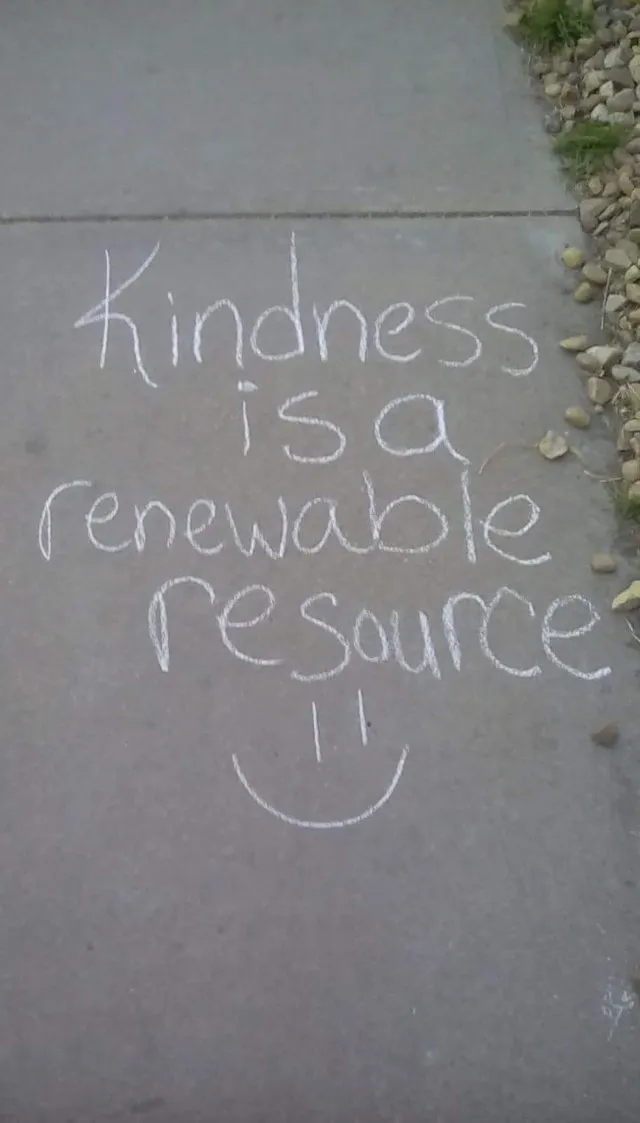 Kindness
is a
renewable
resource